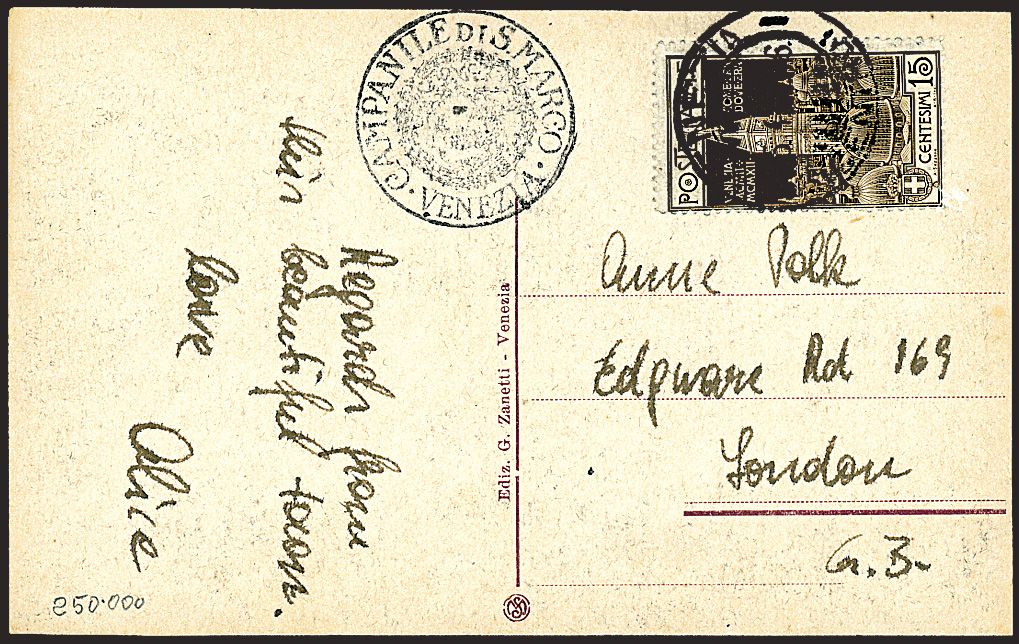 CAMPANILE DI S. MARCO · VENEZIA ·
VENEZIA
POSTE
CENTESIMI 15
COM'ERA
DOV'ERA
MCMXII
Regards from
this beautiful town.
Love
Alice
Ediz. G. Zanetti - Venezia
Anne Polk
Edgware Rd 169
London
G.B.
250.000